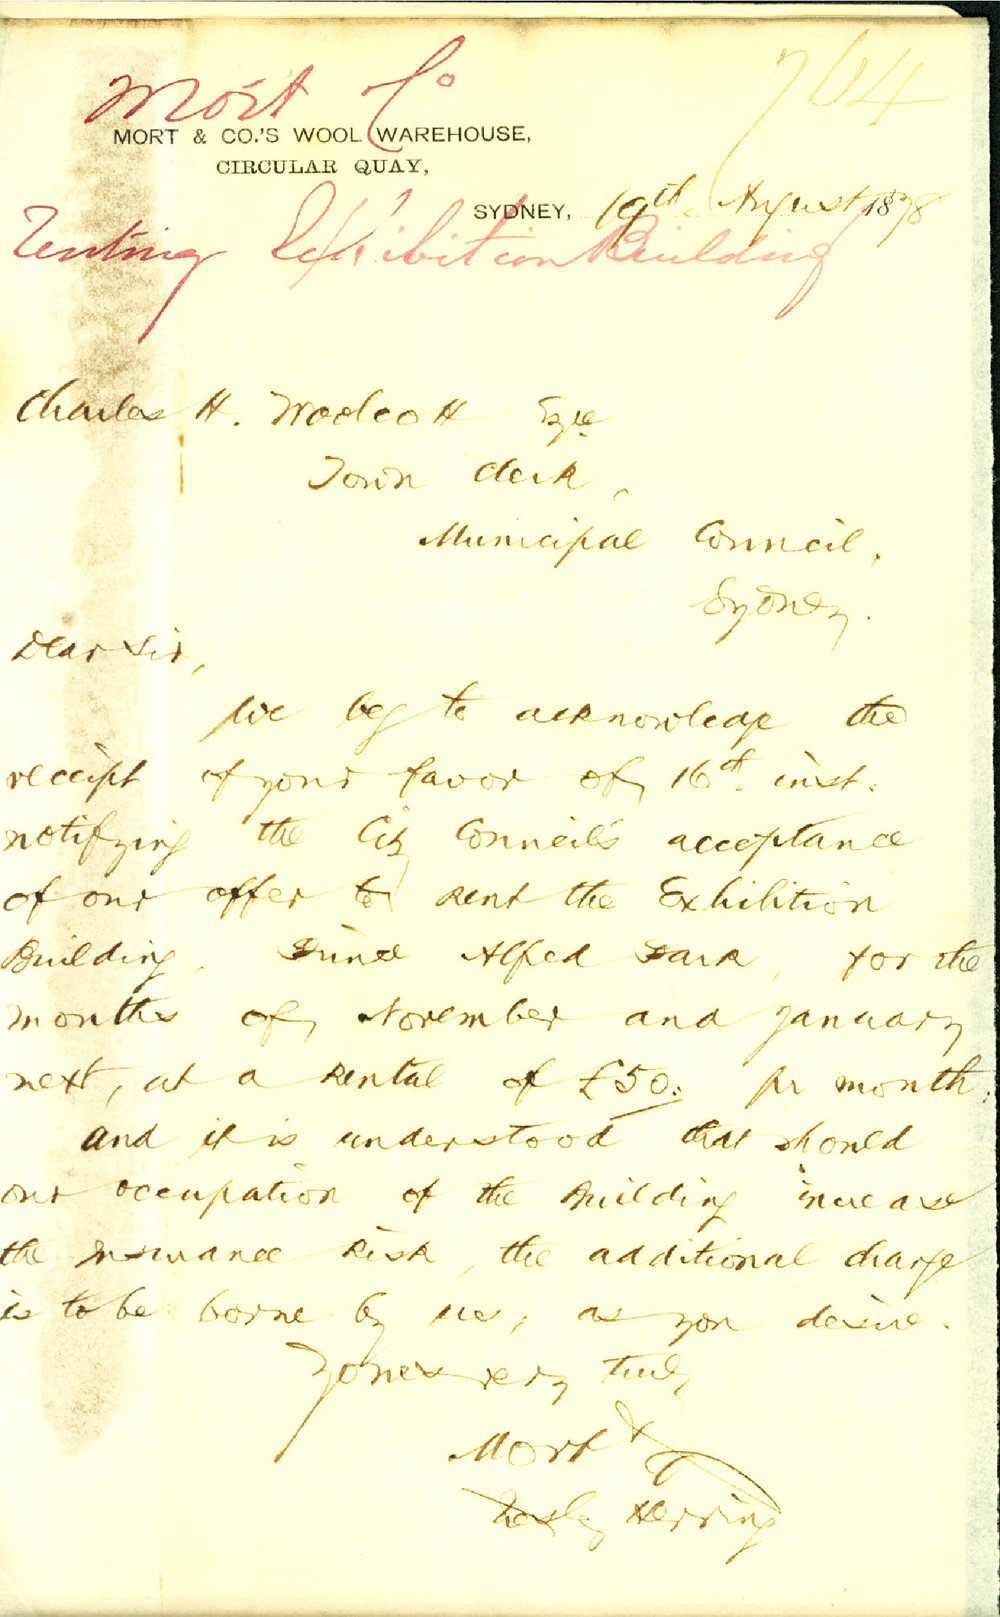 Mort Co
764
MORT & CO.'S WOOL WAREHOUSE,
CIRCULAR QUAY,
SYDNEY, 19th August 1878
Renting Exhibition Building
Charles H. Woolcott Esqre
Town Clerk,
Municipal Council,
Sydney.
Dear Sir,
We beg to acknowledge the
receipt of your favor of 16th inst.
notifying the City Council's acceptance
of our offer to rent the Exhibition
Building, Prince Alfred Park, for the
months of November and January
next, at a rental of £50: pr month.
and it is understood that should
our occupation of the Building increase
the Insurance Risk, the additional charge
is to be borne by us, as you desire.
Yours very truly
Mort &
Herring